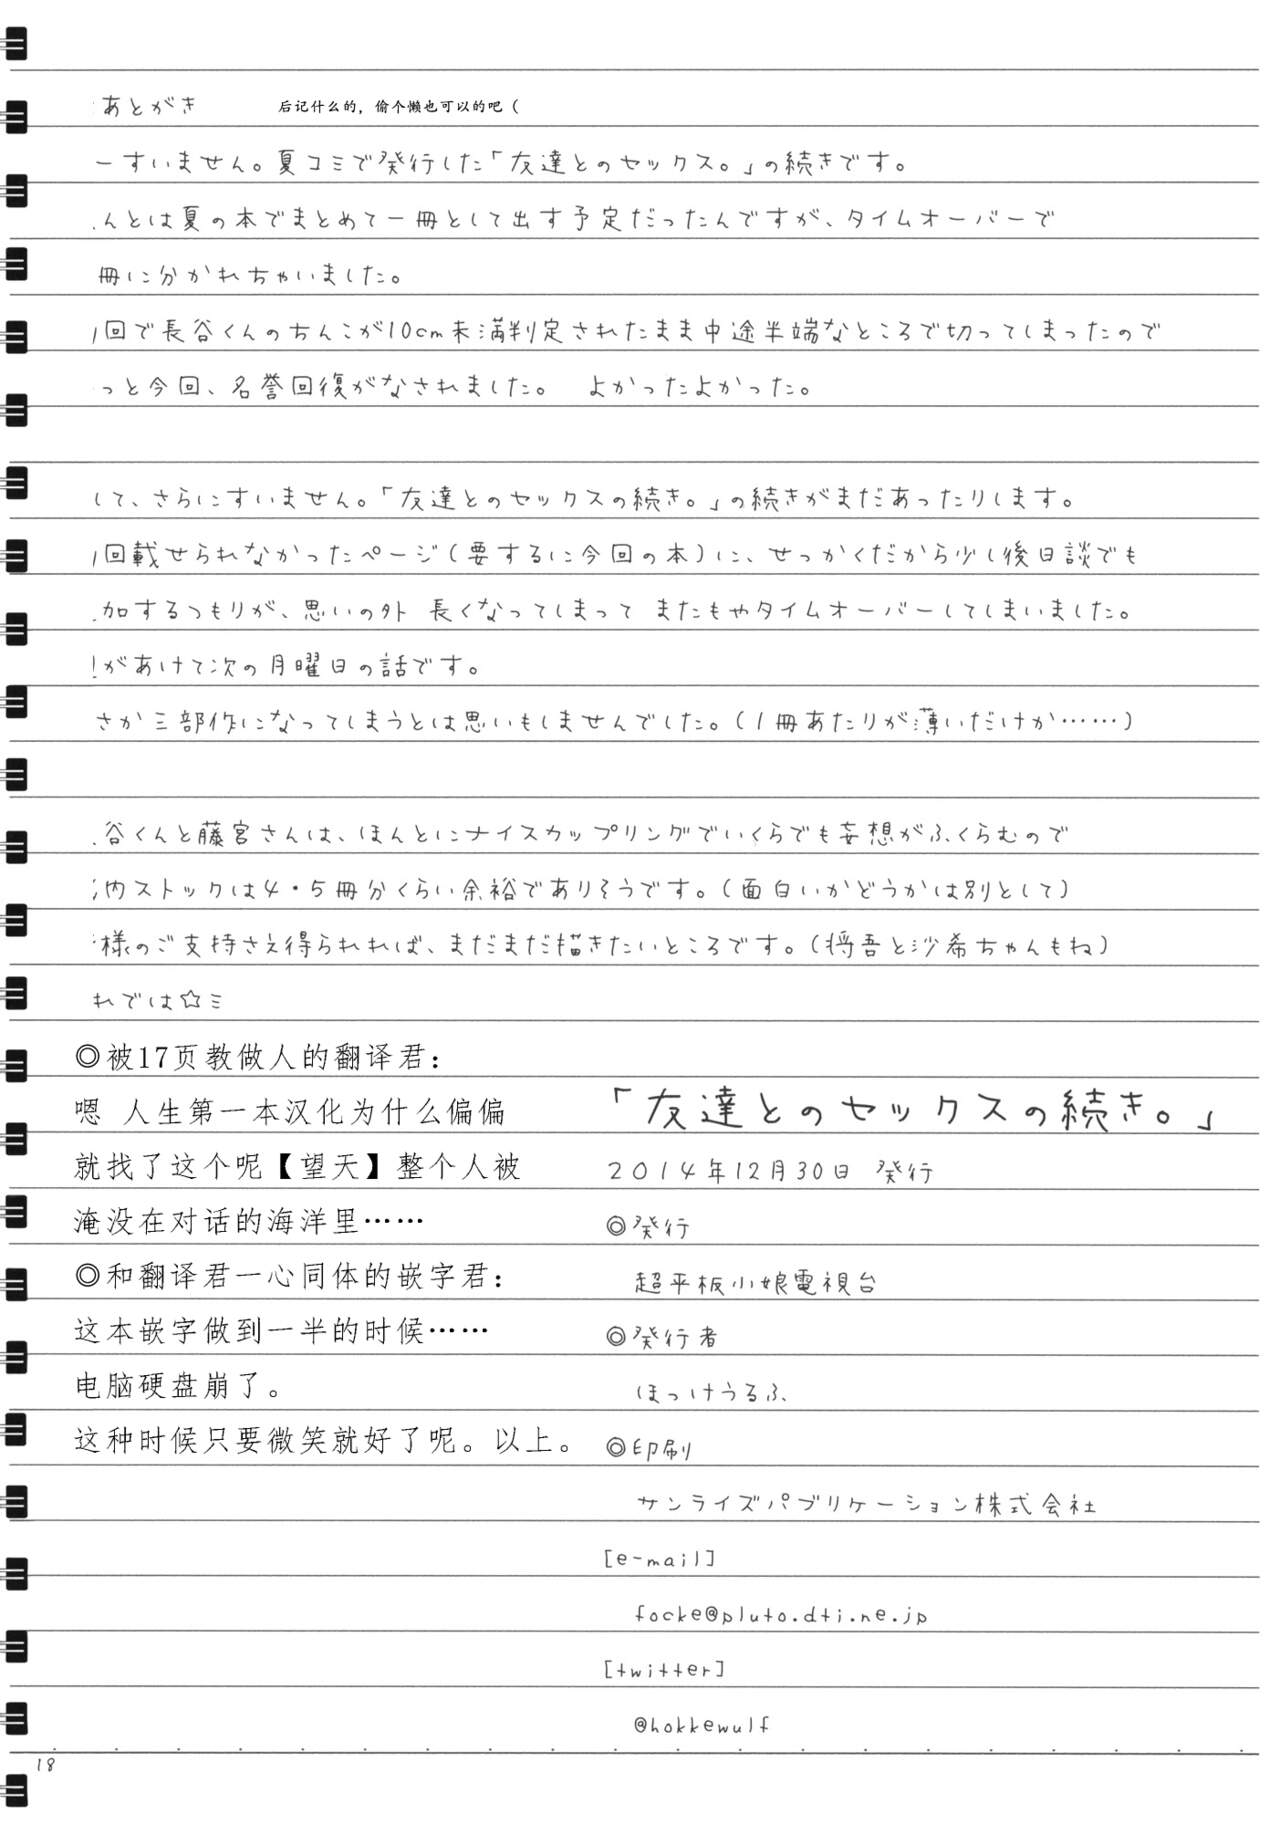 あとがき
后记什么的，偷个懒也可以的吧（
ーすいません。夏コミで発行した「友達とのセックス。」の続きです。
んとは夏の本でまとめて一冊として出す予定だったんですが、タイムオーバーで
冊に分かれちゃいました。
回で長谷くんのちんこが10cm未満判定されたまま中途半端なところで切ってしまったので
っと今回、名誉回復がなされました。　よかったよかった。
して、さらにすいません。「友達とのセックスの続き。」の続きがまだあったりします。
回載せられなかったページ(要するに今回の本)に、せっかくだから少し後日談でも
加するつもりが、思いの外 長くなってしまって またもやタイムオーバーしてしまいました。
があけて次の月曜日の話です。
さか三部作になってしまうとは思いもしませんでした。(1冊あたりが薄いだけか……)
谷くんと藤宮さんは、ほんとにナイスカップリングでいくらでも妄想がふくらむので
内ストックは4・5冊分くらい余裕でありそうです。(面白いかどうかは別として)
様のご支持さえ得られれば、まだまだ描きたいところです。(将吾と沙希ちゃんもね)
れでは☆ミ
◎被17页教做人的翻译君：
嗯 人生第一本汉化为什么偏偏
就找了这个呢【望天】整个人被
淹没在对话的海洋里……
◎和翻译君一心同体的嵌字君：
这本嵌字做到一半的时候……
电脑硬盘崩了。
这种时候只要微笑就好了呢。以上。
「友達とのセックスの続き。」
2014年12月30日 発行
◎発行
超平板小娘電視台
◎発行者
ほっけうるふ
◎印刷
サンライズパブリケーション株式会社
[e-mail]
focke@pluto.dti.ne.jp
[twitter]
@hokkewulf
18